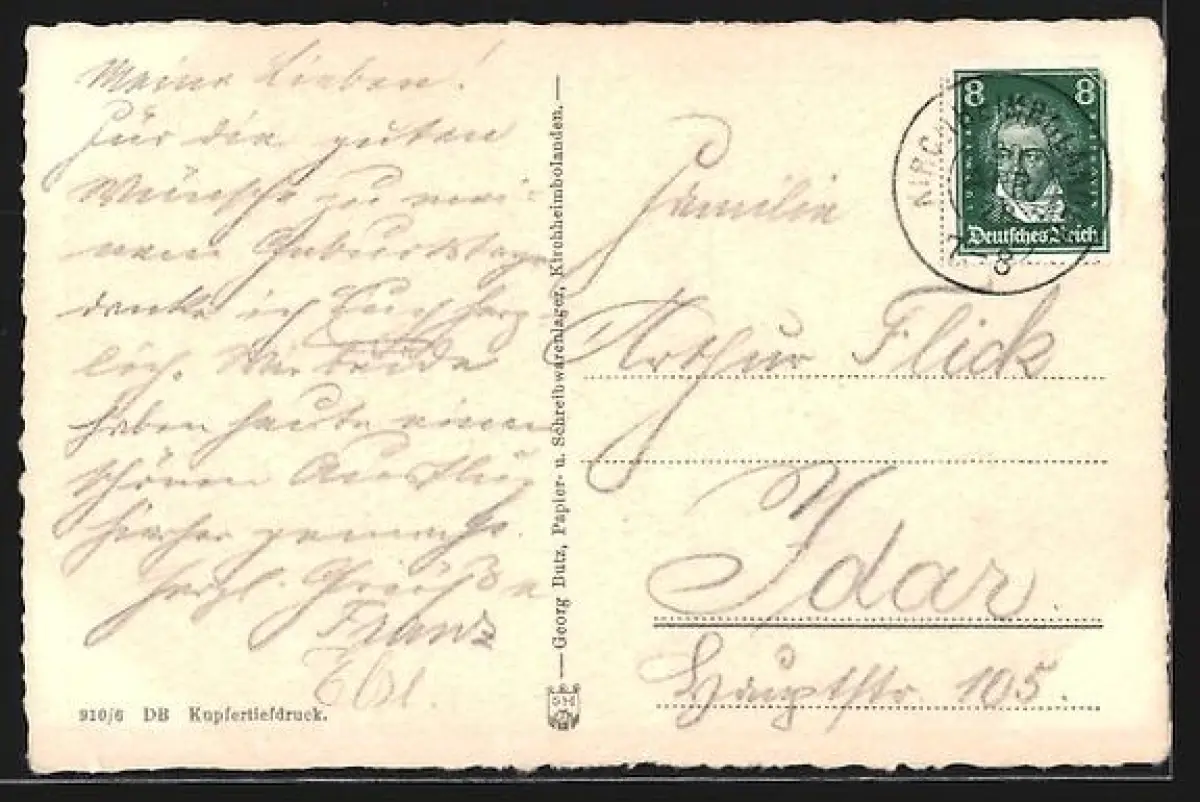 Meine Lieben!
Für die guten
Wünsche zu mei-
nem Geburtstage
danke ich Euch herz-
lich. Wir beide
haben heute einen
schönen Ausflug
hierher gemacht.
Herzl. Grüße
Franz
910/6 DB Kupfertiefdruck.
Georg Butz, Papier- u. Schreibwarenlager, Kirchheimbolanden.
8 8
Deutsches Reich
8
Familie
Arthur Flick
Idar.
Hauptstr. 105.